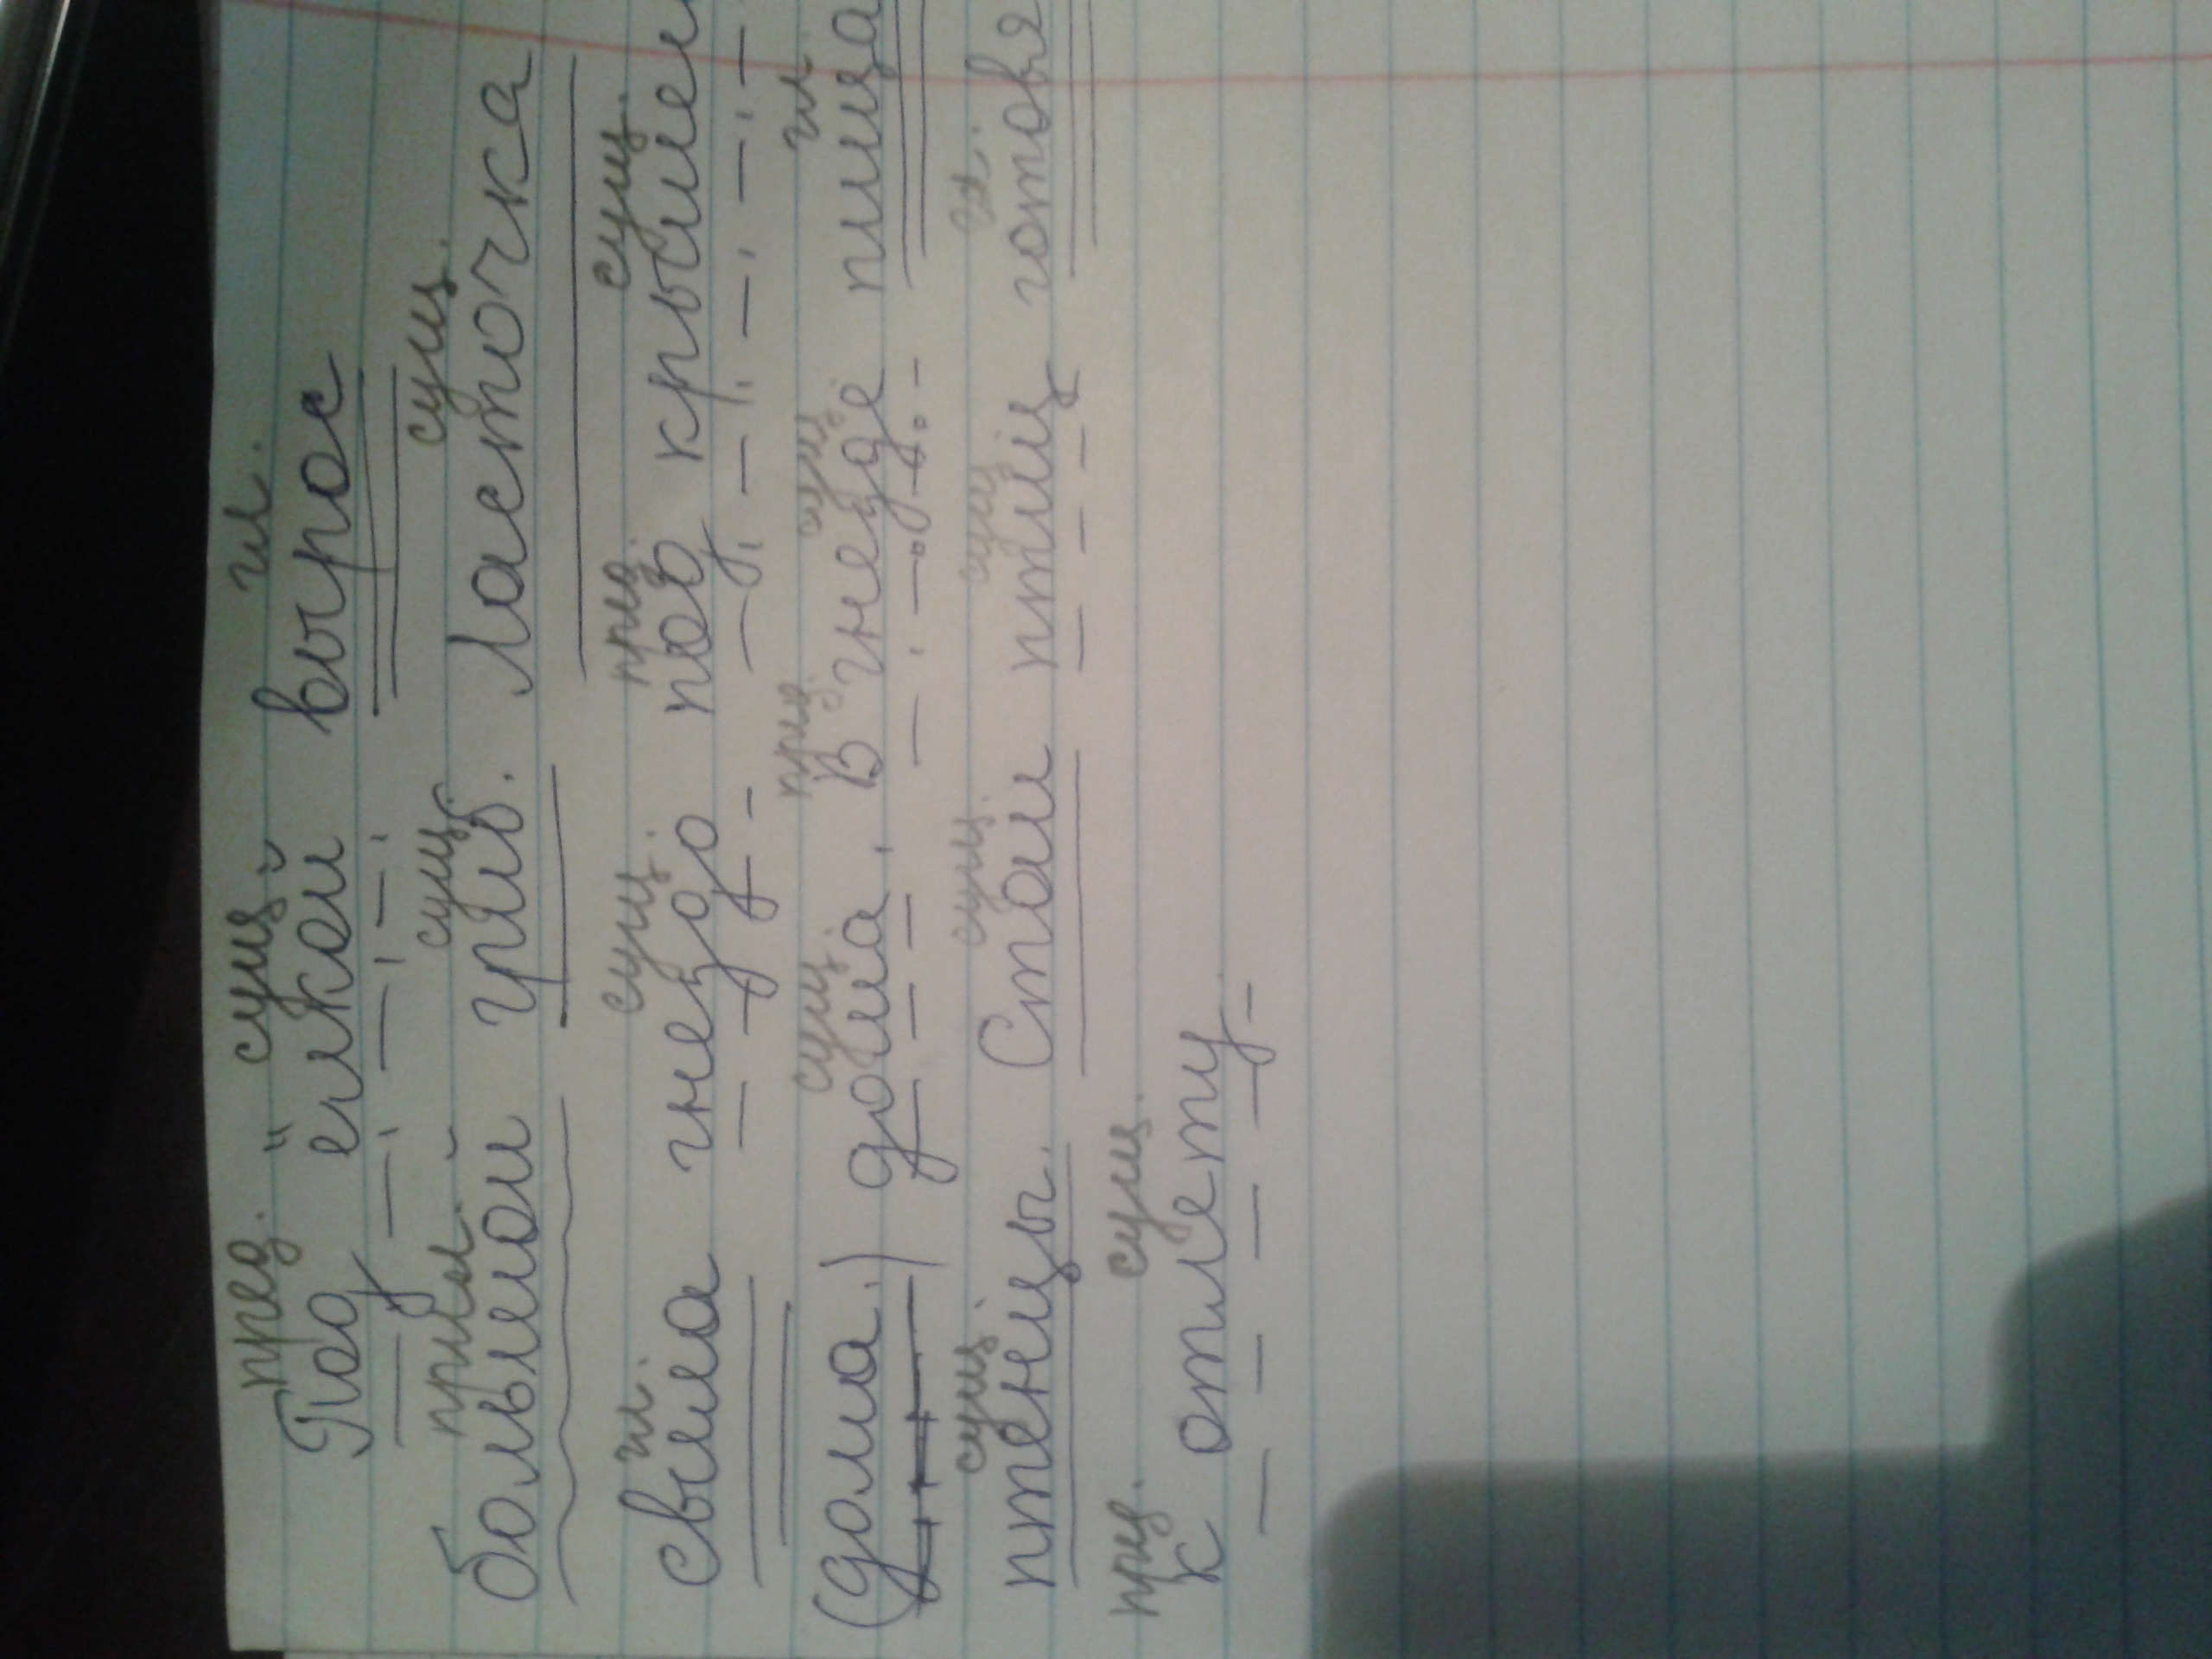 пред. сущ. гл.
Под ёлкой вырос
прил. сущ. сущ.
большой гриб. Ласточка
гл. сущ. пред. сущ.
свила гнездо под крышей
сущ. пред. сущ. гл.
(дома.) дома. В гнезде пища
сущ. сущ. сущ. гл.
птенцы. Стаи птиц готовя
пред. сущ.
к отлету.